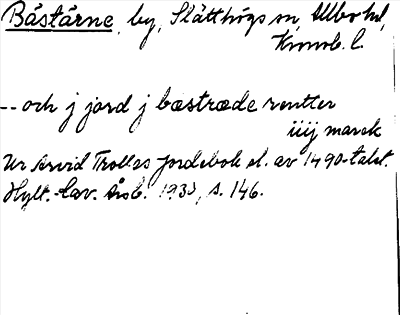 Båstårne, by, Slätthögs sn, Allbo hd,
Kronob. l.
-- och j jord j bæstræde rentter
iiij marck
Ur Arvid Trolles jordebok sl. av 1490-talet.
Hylt.-Cav. årsb. 1933, s. 146.